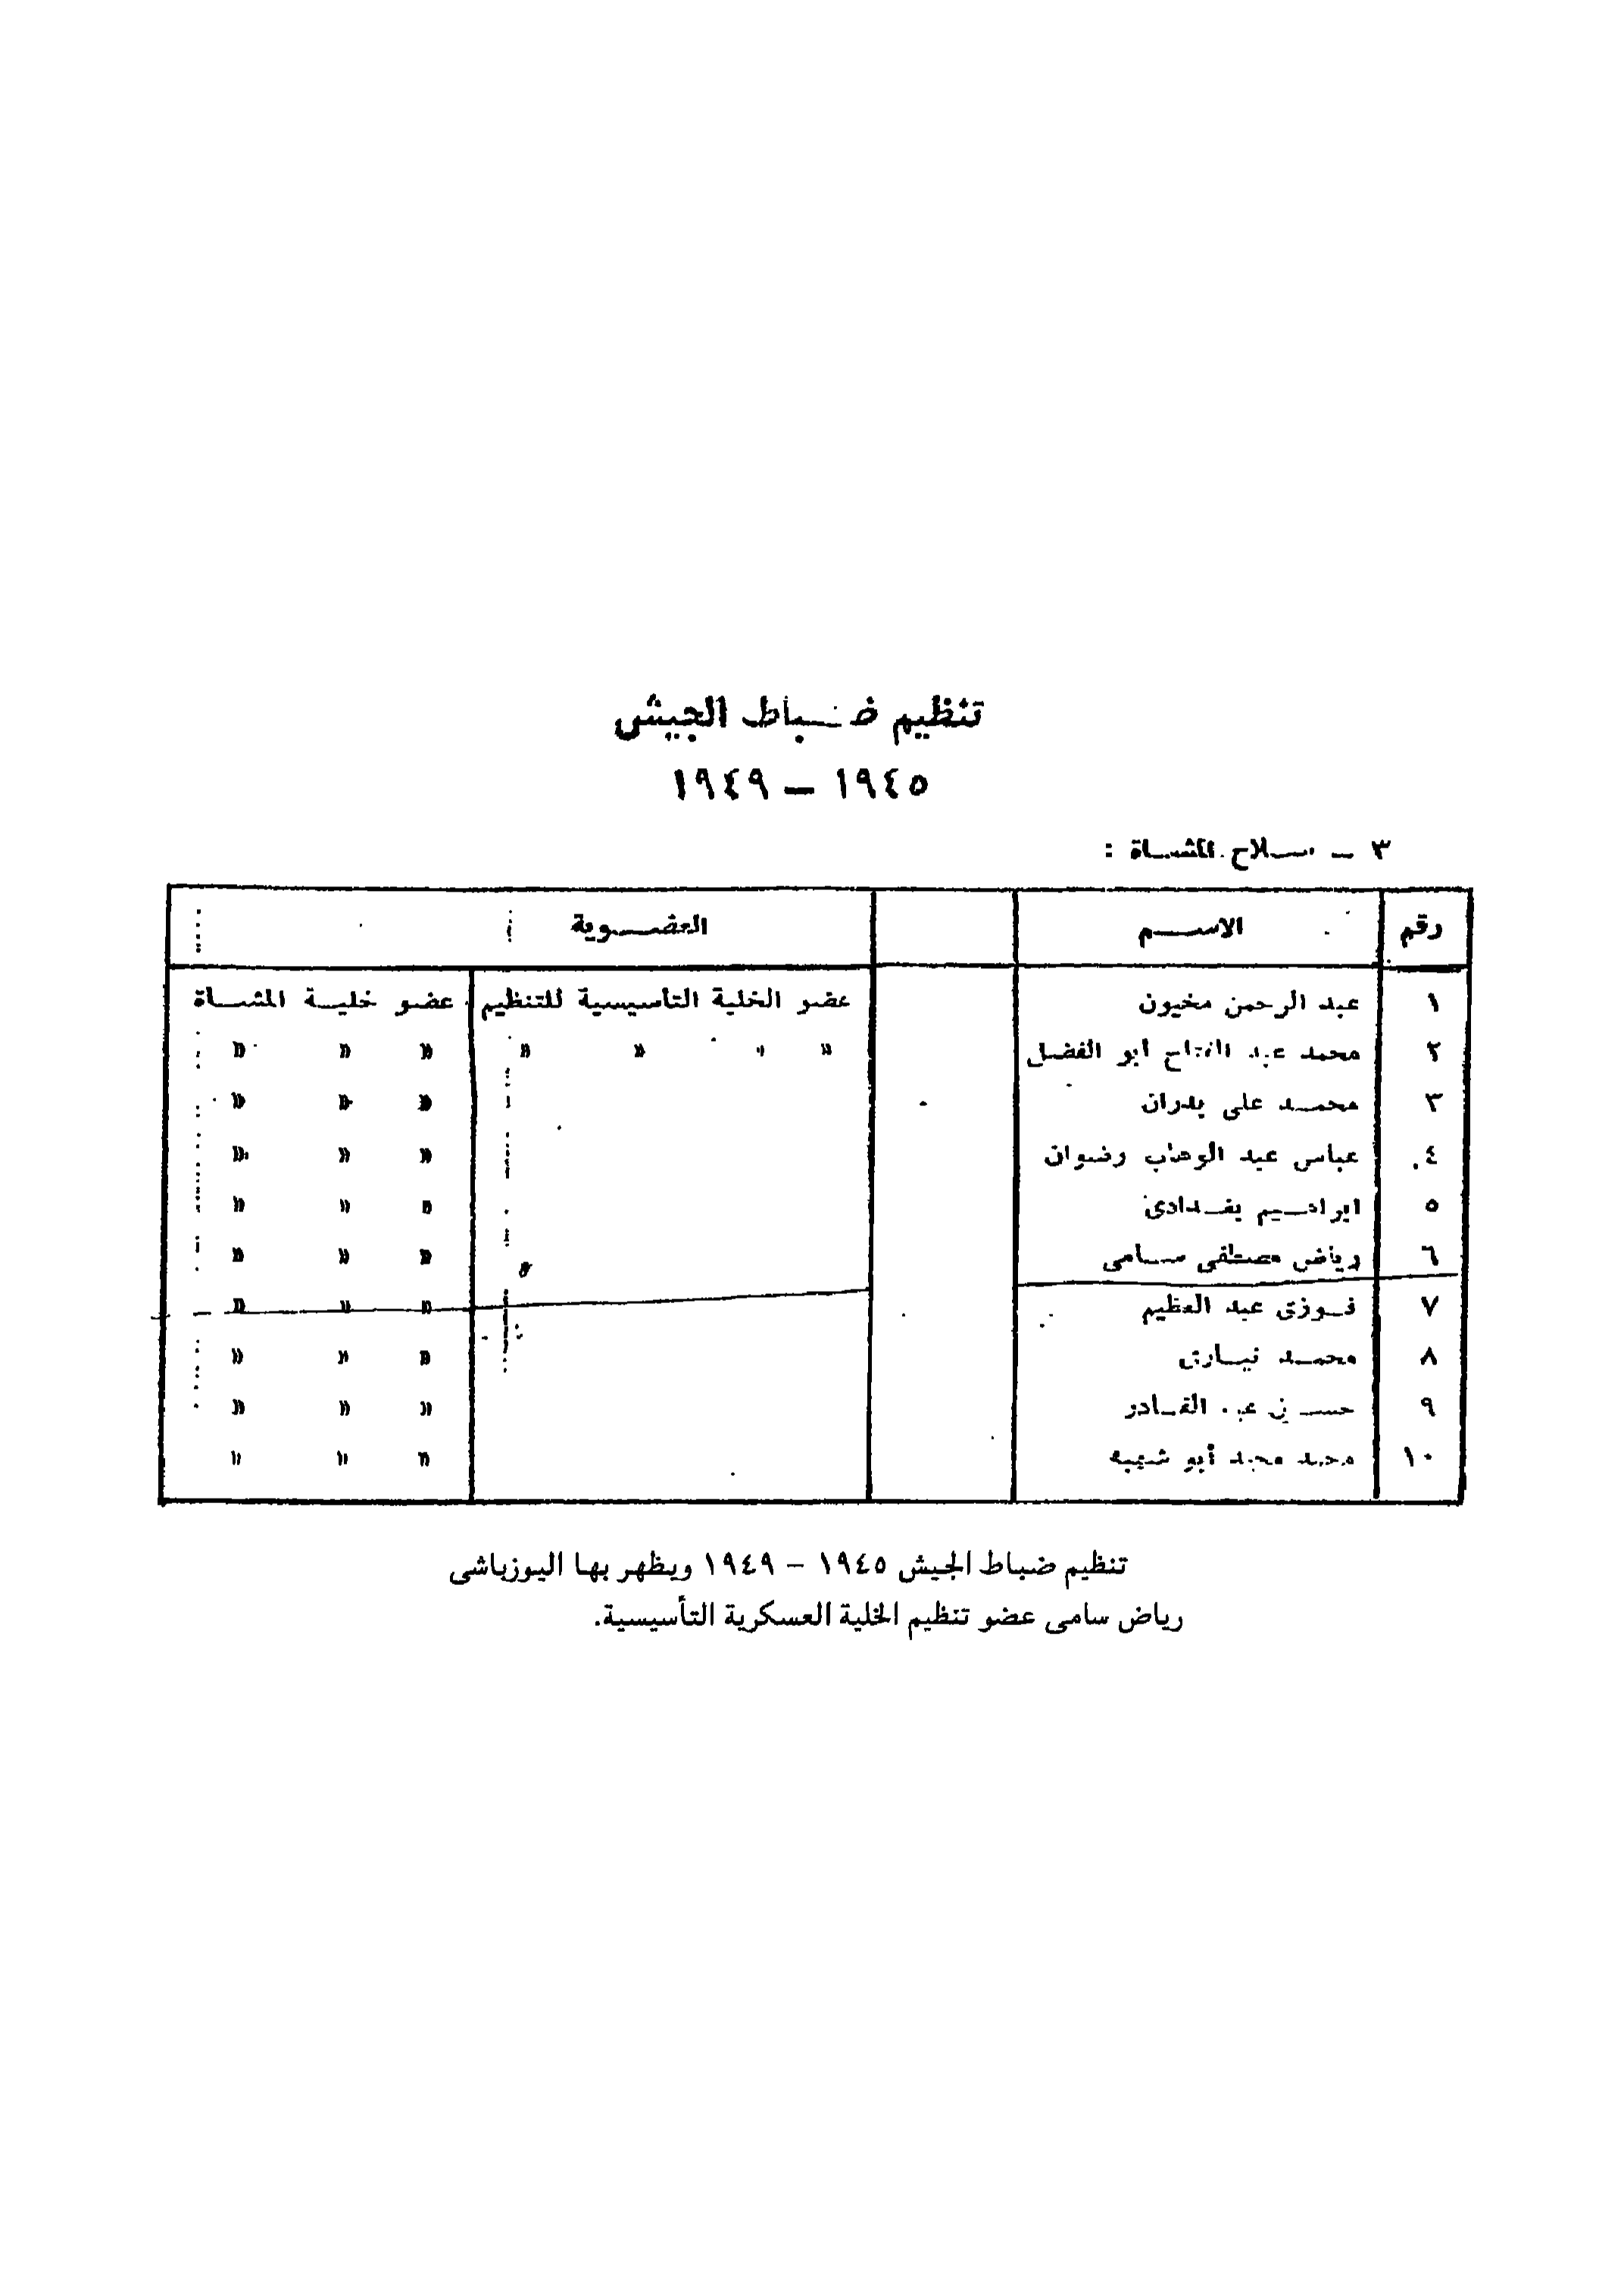 تنظيم ضباط الجيش
١٩٤٥ – ١٩٤٩
٣ – سلاح المشاة :
رقم الاسم العضوية
١ عبد الرحمن مخيون عضو الخلية التأسيسية للتنظيم عضو خلية المشاة
٢ محمد عبد الفتاح أبو الفضل » » » » » » »
٣ محمد على بدران » » »
٤ عباس عبد الوهاب رضوان » » »
٥ ابراهيم بغدادى » » »
٦ رياض مصطفى سامى » » »
٧ فوزى عبد العظيم » » »
٨ محمد » » »
٩ عبد القادر » » »
١٠ محمد محمد أبو » » »
تنظيم ضباط الجيش ١٩٤٥ – ١٩٤٩ ويظهر بها اليوزباشى
رياض سامى عضو تنظيم الخلية العسكرية التأسيسية.